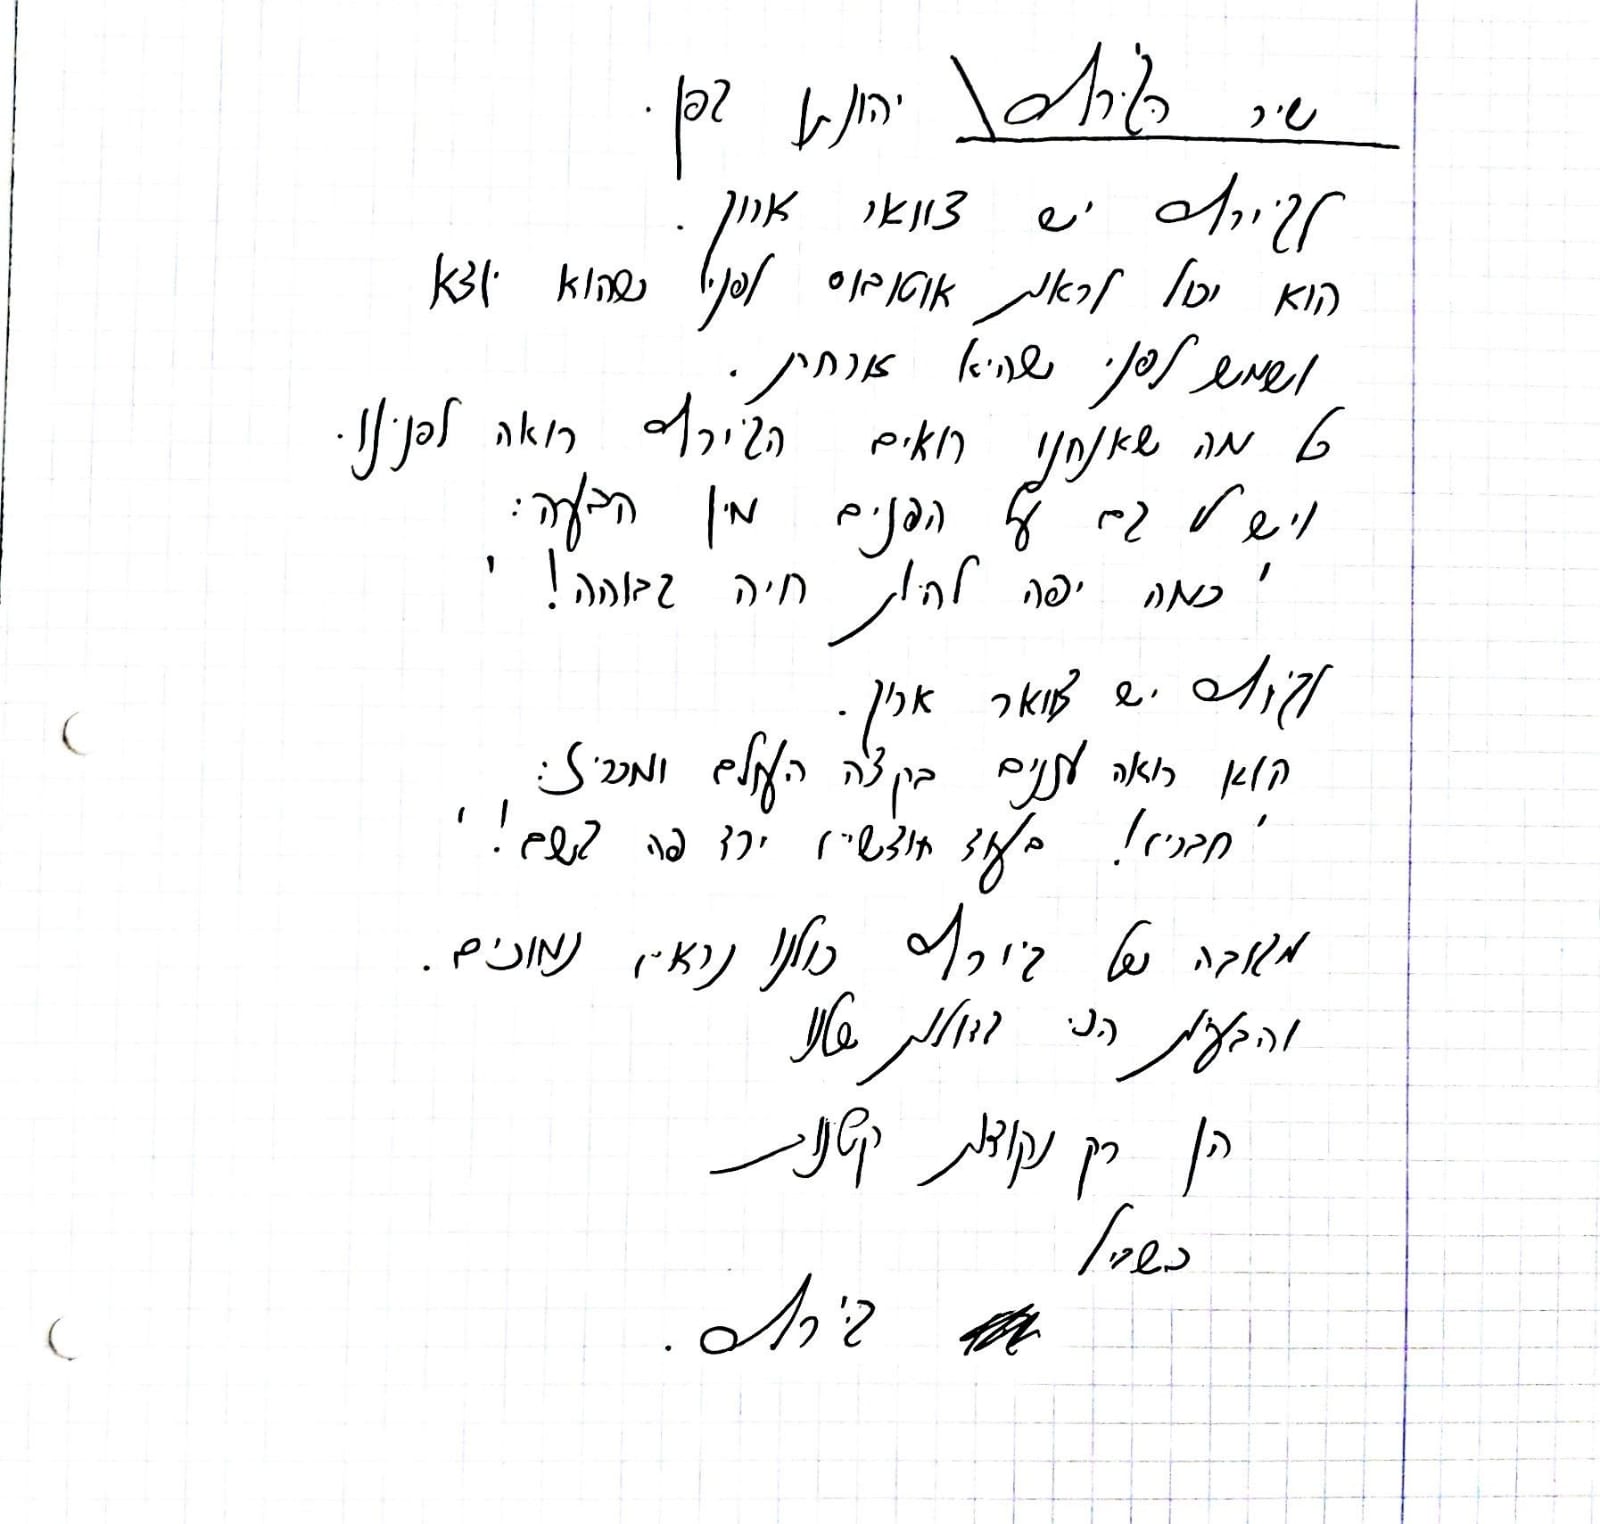 שיר הג'ירף \ יהונתן גפן.
לג'ירף יש צוואר ארוך.
הוא יכול לראות אוטובוס לפני שהוא יוצא
ושמש לפני שהיא זורחת.
כל מה שאנחנו רואים הג'ירף רואה לפנינו.
ויש לו גם על הפנים מין הבעה:
'כמה יפה להיות חיה גבוהה!'
לג'ירף יש צוואר ארוך.
הוא רואה עננים בקצה העולם ומכריז:
'חבריי! בעוד חודשיים ירד פה גשם!'
מגובה של ג'ירף כולנו נראים נמוכים.
והבעיות הכי גדולות שלנו
הן רק נקודות קטנות
בשביל
ג'ירף.